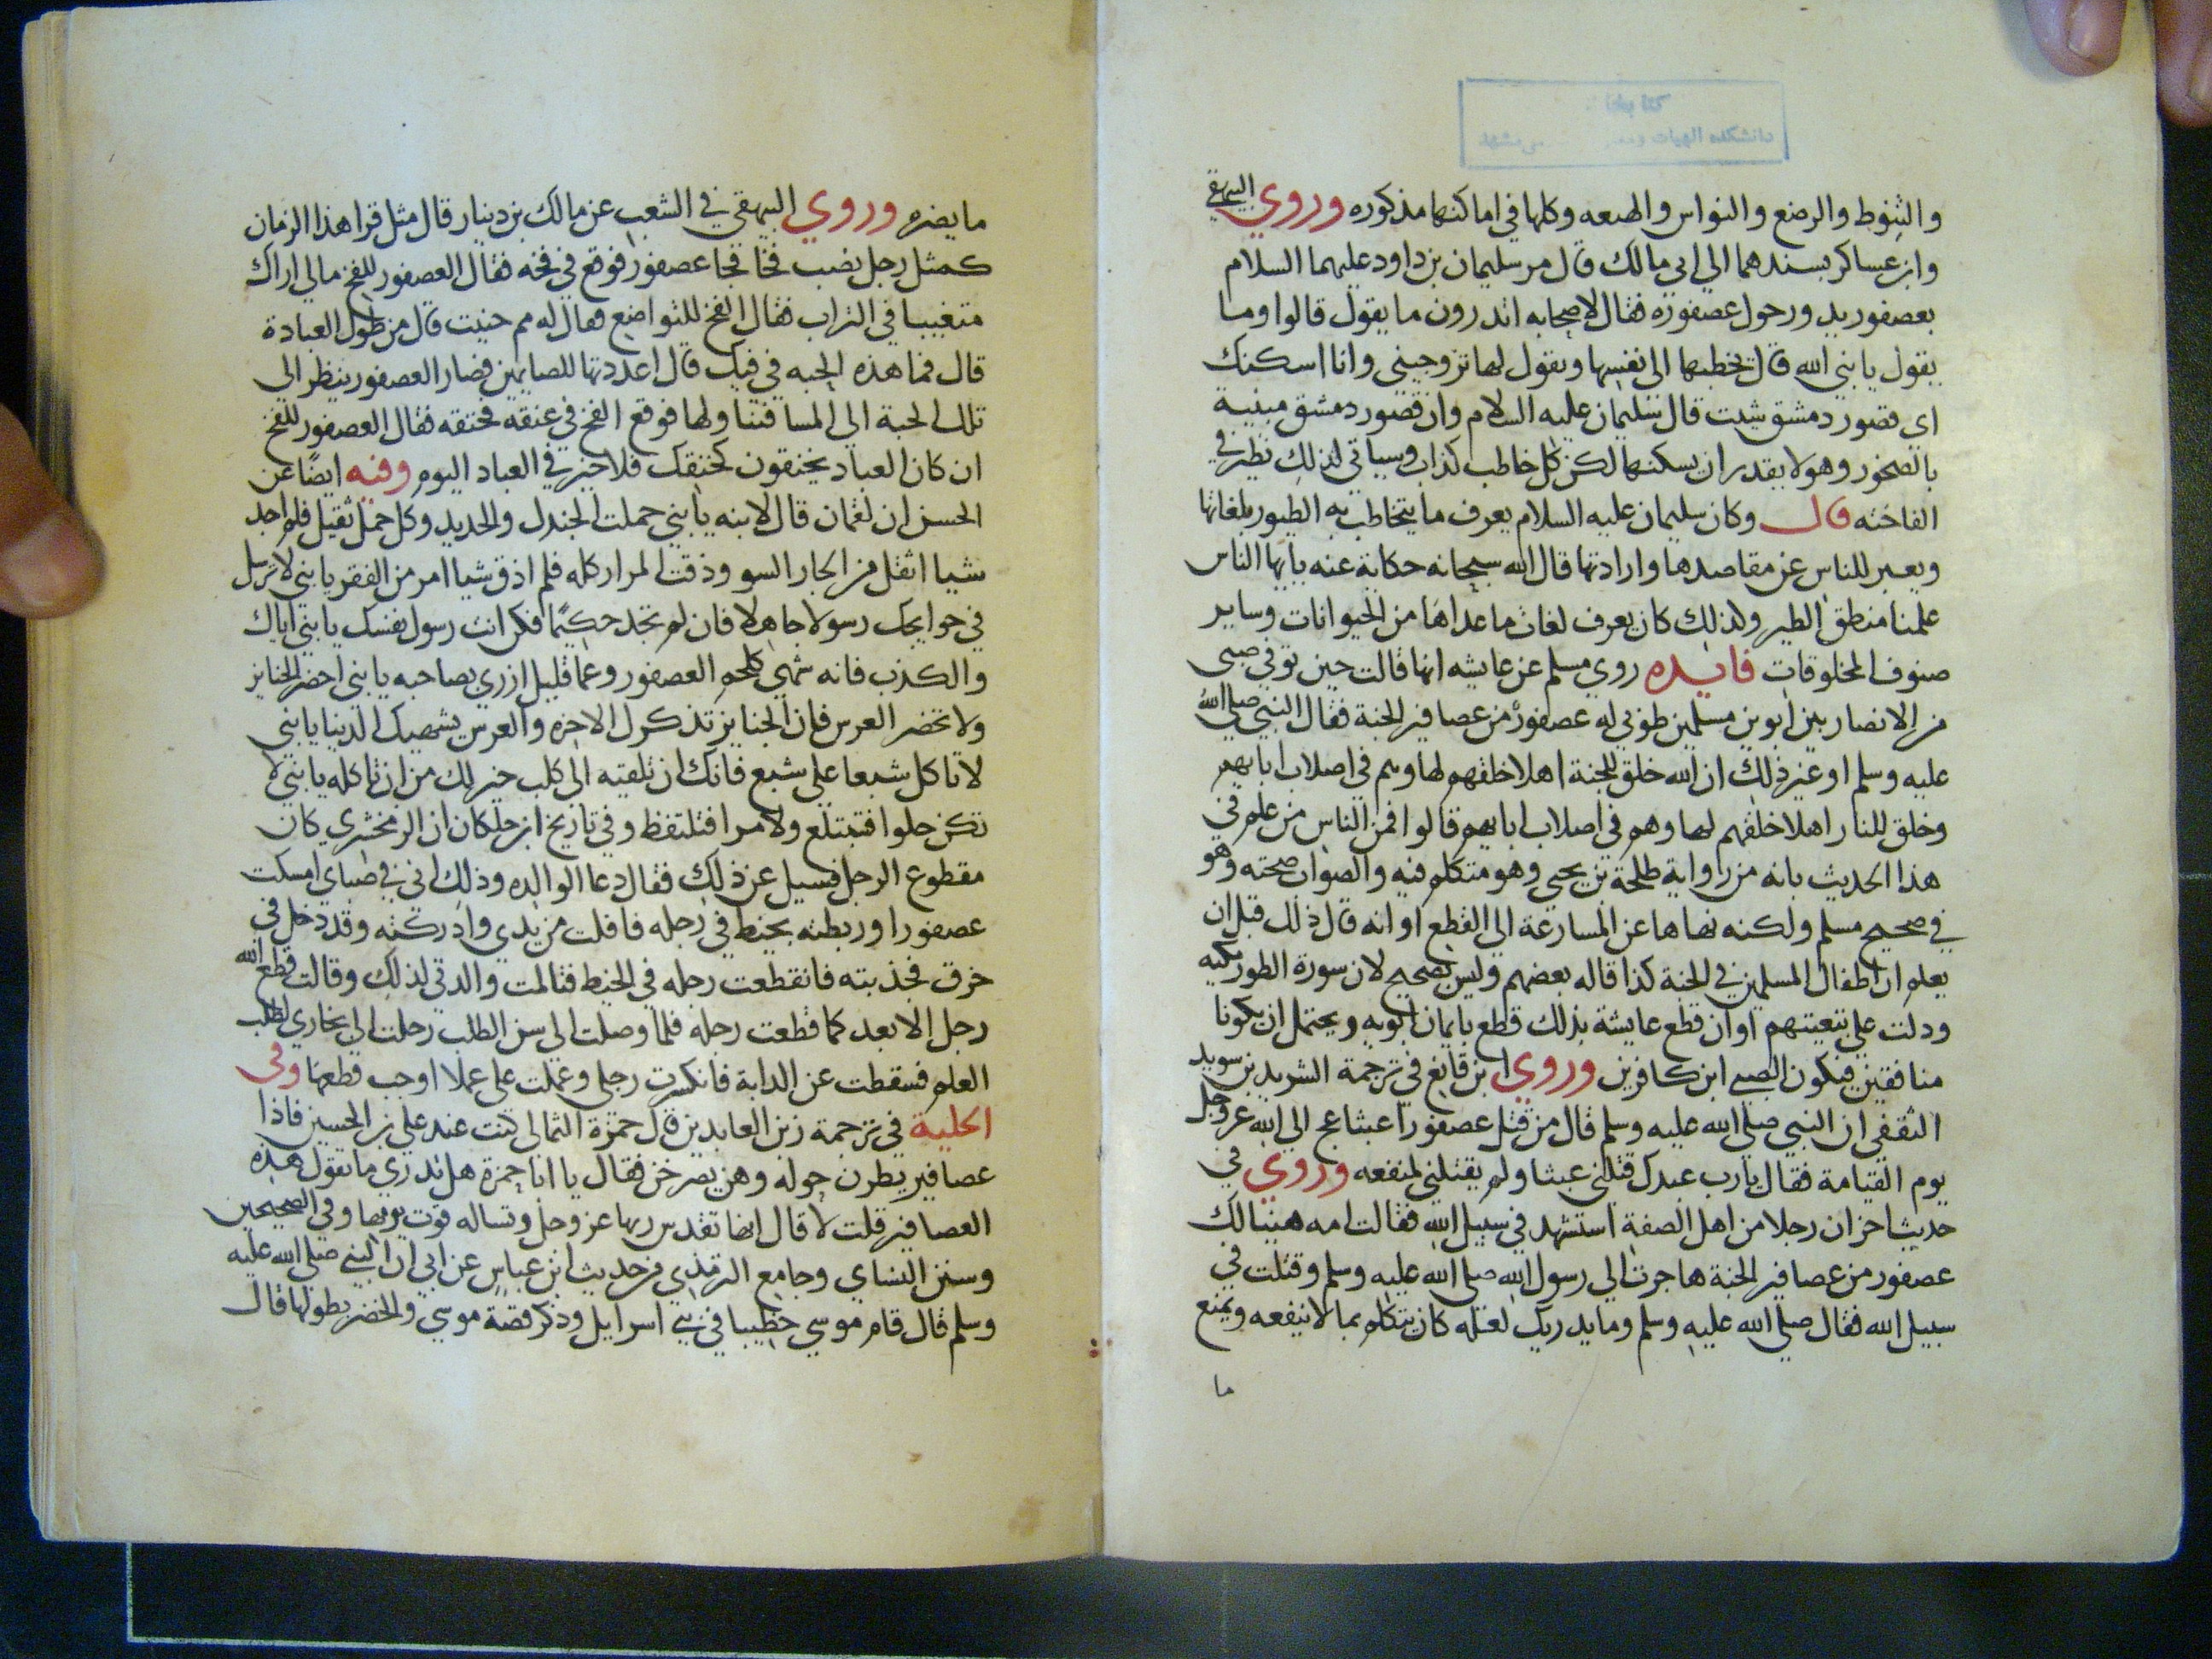 والتنوط والرضع والنواس والهعه وكلها في اماكنها مذكوره وروي البيهقي
وابن عساكر بسندهما الى ابي مالك قال مر سليمان بن داود عليهما السلام
بعصفور يدور حول عصفوره فقال لاصحابه اتدرون ما يقول قالوا وما
يقول يا نبي الله قال يخطبها الى نفسها ويقول لها تزوجيني وانا اسكنك
اي قصور دمشق شيت قال سليمان عليه السلام وان قصور دمشق مبنية
بالصخور وهو لا يقدر ان يسكنها لكن كل خاطب كذاب وسياتي لذلك نظير في
الفاخته قال وكان سليمان عليه السلام يعرف ما يتخاطب به الطيور بلغاتها
ويعبر للناس عن مقاصدها وارادتها قال الله سبحانه حكاية عنه يايها الناس
علمنا منطق الطير ولذلك كان يعرف لغات ما عداها من الحيوانات وساير
صنوف المخلوقات فايده روي مسلم عن عايشه انها قالت حين توفي صبي
من الانصار بين ابوين مسلمين طوبى له عصفور من عصافير الجنة فقال النبي صلى الله
عليه وسلم او غير ذلك ان الله خلق للجنة اهلا خلقهم لها وهم في اصلاب ابايهم
وخلق للنار اهلا خلقهم لها وهم في اصلاب ابايهم قالوا فمن الناس من علم في
هذا الحديث بانه من رواية طلحة بن يحيى وهو متكلم فيه والصواب صحته وهو
في صحيح مسلم ولكنه نهاها عن المسارعة الى القطع او انه قال ذلك قبل ان
يعلم ان اطفال المسلمين في الجنة كذا قاله بعضهم وليس بصحيح لان سورة الطور مكيه
ودلت على تبعيتهم او ان قطع عايشة بذلك قطع بايمان ابويه ويحتمل ان يكونا
منافقين فيكون الصبي ابن كافرين وروي ابن قانع في ترجمة الشريد بن سويد
الثقفي ان النبي صلى الله عليه وسلم قال من قتل عصفورا عبثا عج الى الله عز وجل
يوم القيامة فقال يا رب عبدك قتلني عبثا ولم يقتلني لمنفعه وروي في
حديث اخر ان رجلا من اهل الصفة استشهد في سبيل الله فقالت امه هنيا لك
عصفور من عصافير الجنة هاجرت الى رسول الله صلى الله عليه وسلم وقتلت في
سبيل الله فقال صلى الله عليه وسلم وما يدريك لعله كان يتكلم بما لا ينفعه ويمنع
ما
ما يضره وروي البيهقي في الشعب عن مالك بن دينار قال مثل قرا هذا الزمان
كمثل رجل نصب فخا فجا عصفور فوقع في فخه فقال العصفور للفخ مالي اراك
متغيبا في التراب فقال الفخ للتواضع فقال له مم حنيت قال من طول العبادة
قال فما هذه الحبه في فيك قال اعددتها للصايمين فصار العصفور ينظر الى
تلك الحبة الى المسا فتناولها فوقع الفخ في عنقه فخنقه فقال العصفور للفخ
ان كان العباد يخنقون كخنقك فلا خير في العباد اليوم وفيه ايضا عن
الحسن ان لقمان قال لابنه يا بني حملت الجندل والحديد وكل حمل ثقيل فلم اجد
شيا اثقل من الجار السو وذقت المرار كله فلم اذق شيا امر من الفقر يا بني لا ترسل
في حوايجك رسولا جاهلا فان لم تجد حكيما فكن انت رسول نفسك يا بني اياك
والكذب فانه شهي كلحم العصفور وعما قليل ازري بصاحبه يا بني احضر الجنايز
ولا تحضر العرس فان الجنايز تذكرك الاخره والعرس يشهيك الدنيا يا بني
لا تاكل شبعا على شبع فانك ان تلقيه الى كلب خير لك من ان تاكله يا بني لا
تكن حلوا فتبتلع ولا مرا فتلتفظ وفي تاريخ ابن خلكان ان الزمخشري كان
مقطوع الرجل فسيل عن ذلك فقال دعا الوالده وذلك اني في صباي امسكت
عصفورا وربطته بخيط في رجله فافلت من يدي وادركته وقد دخل في
خرق فجذبته فانقطعت رجله في الخيط فتالمت والدتي لذلك وقالت قطع الله
رجل الابعد كما قطعت رجله فلما وصلت الى سن الطلب رحلت الى بخاري لطلب
العلم فسقطت عن الدابة فانكسرت رجلي وعملت علي عملا اوجب قطعها وفي
الحلية في ترجمة زين العابدين قال حمزة الثمالي كنت عند علي بن الحسين فاذا
عصافير يطرن حوله وهن يصرخن فقال يا ابا حمزة هل تدري ما تقول هذه
العصافير قلت لا قال انها تقدس ربها عز وجل وتساله قوت يومها وفي الصحيحين
وسنن النساي وجامع الترمذي من حديث ابن عباس عن ابي ان النبي صلى الله عليه
وسلم قال قام موسى خطيبا في بني اسرايل وذكر قصة موسي والخضر بطولها قال